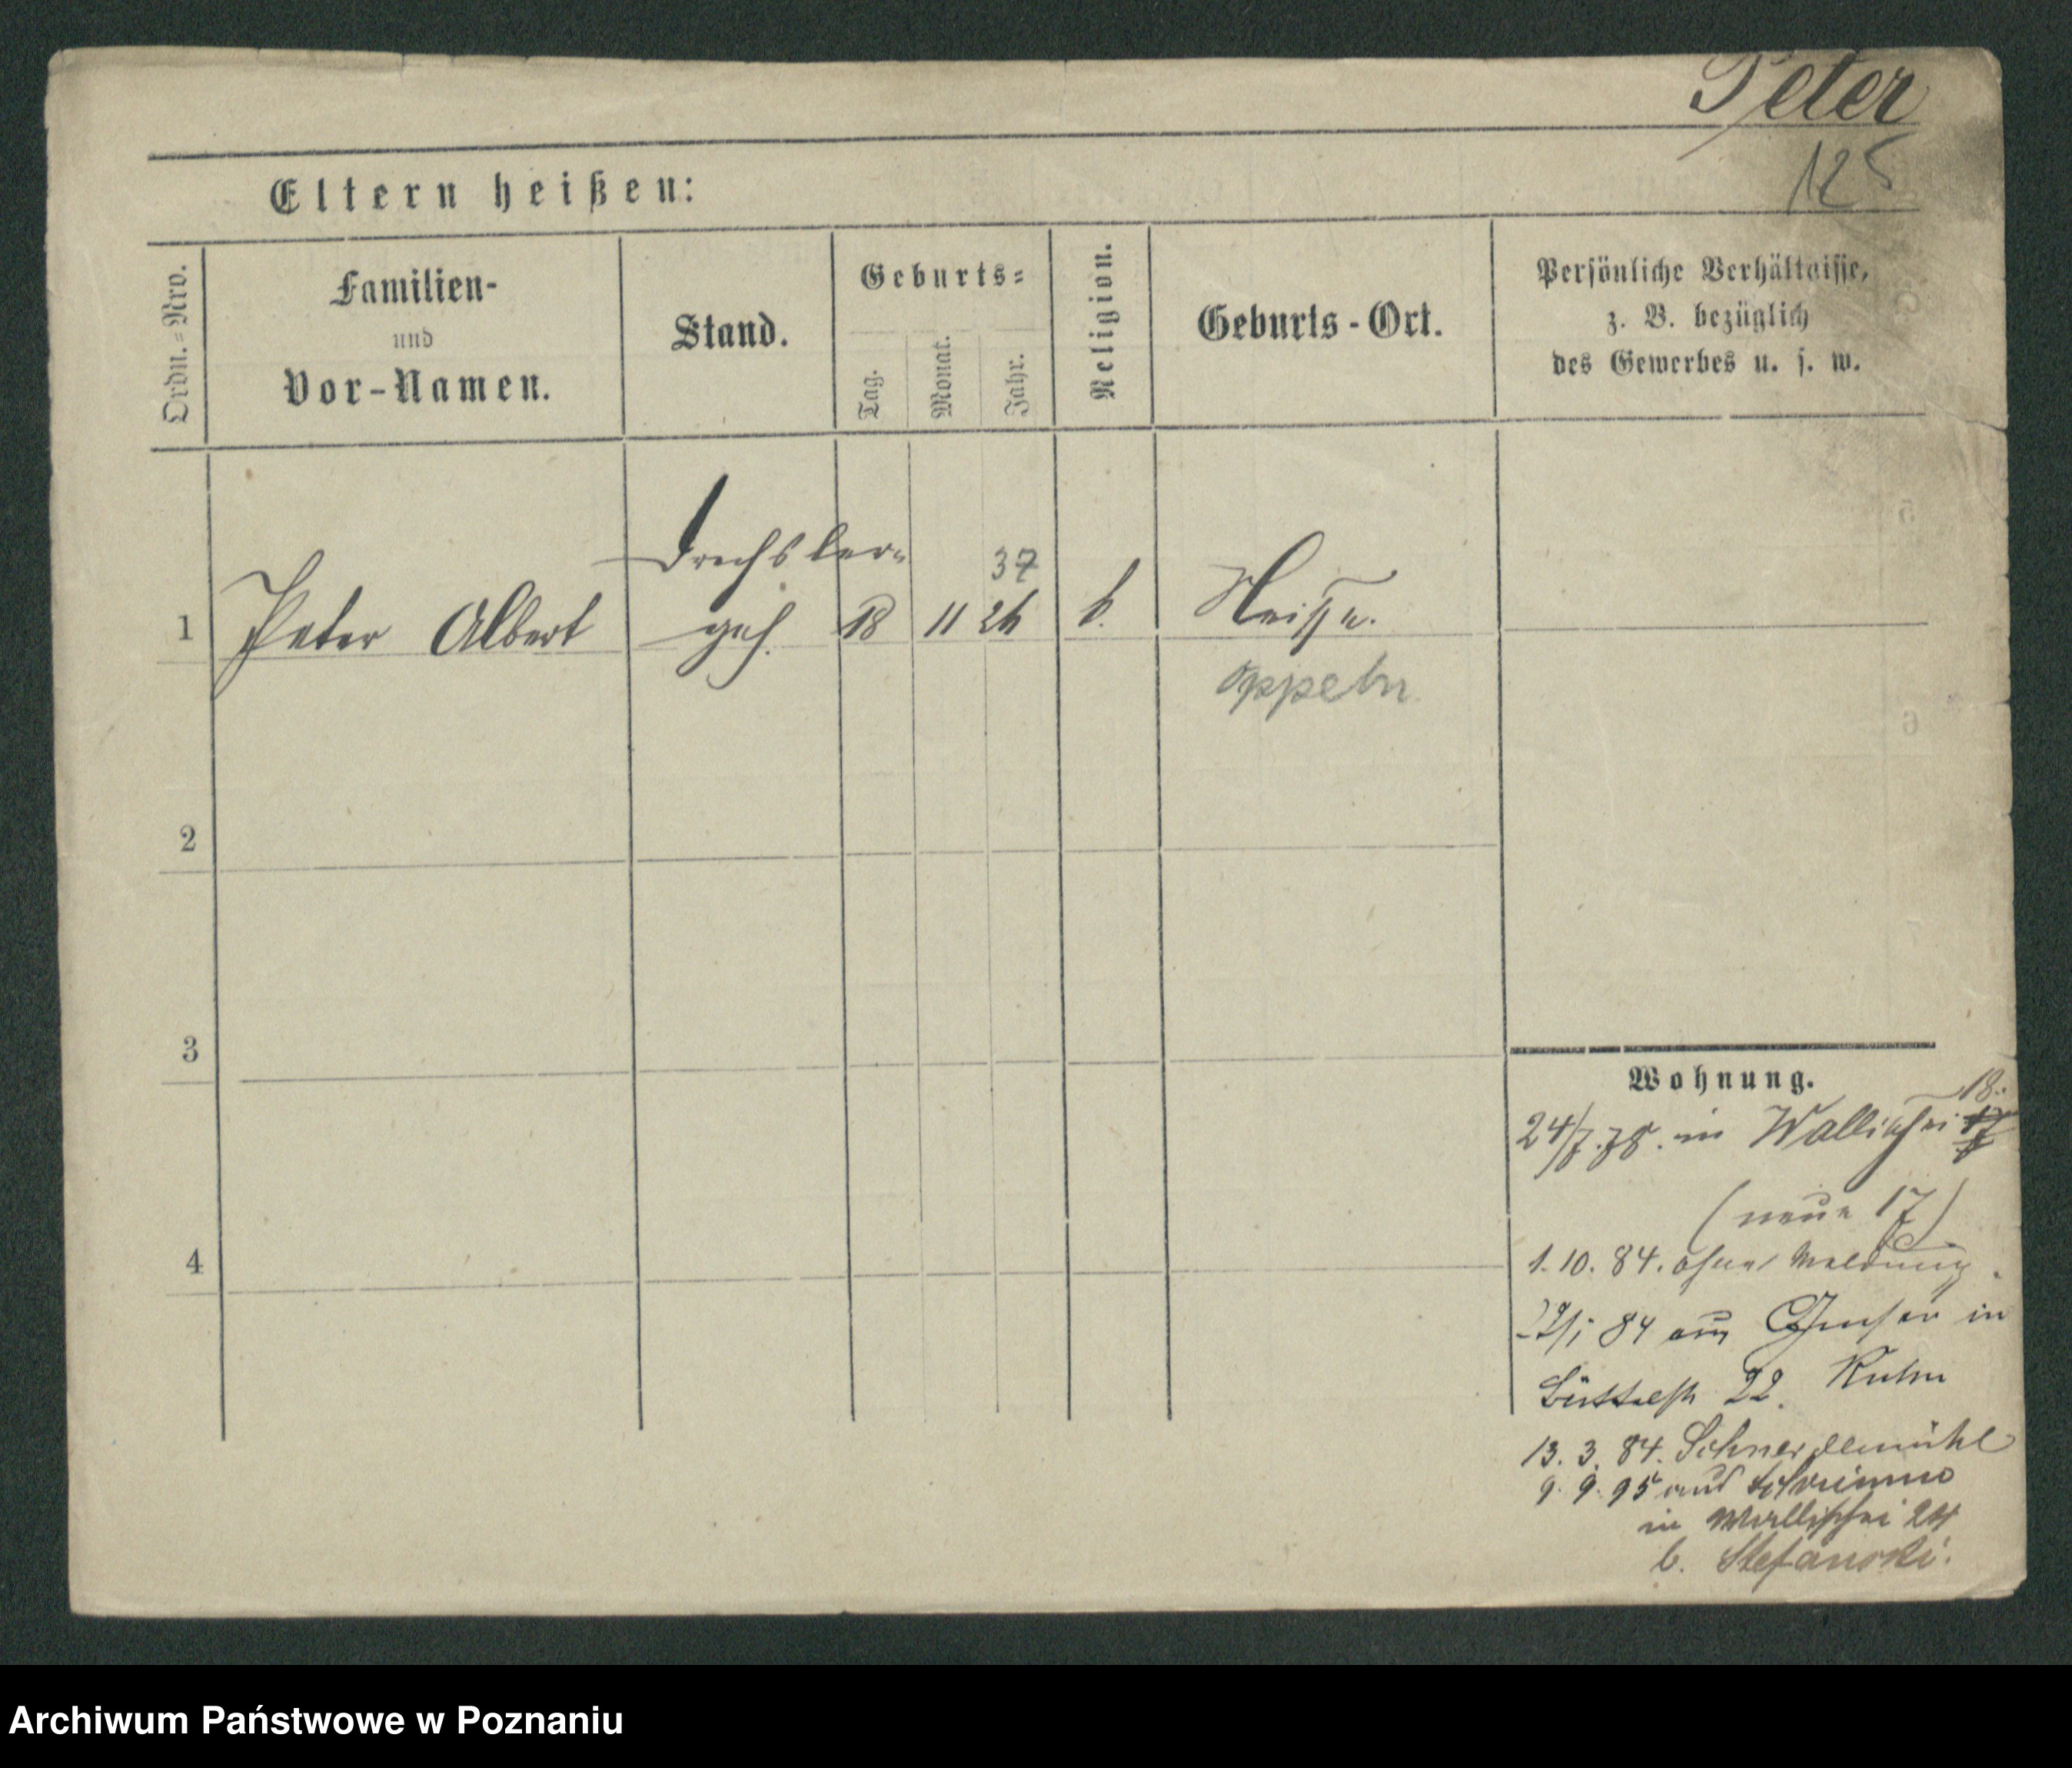 Peter
125
Eltern heißen:
Ordn.-Nro.
Familien-
und
Vor-Namen.
Stand.
Geburts-
Tag.
Monat.
Jahr.
Religion.
Geburts-Ort.
Persönliche Verhältnisse,
z. B. bezüglich
des Gewerbes u. s. w.
Drechsler-
37
1 Peter Albert geh. 18 11 26 k. Neisse.
Oppeln
2
3
4
Wohnung.
18.
24/7.78. in Wallischei 17
(neue 17)
1.10.84. ohne Meldung.
84 aus in
Büttelstr 22.
13.3.84. Schneidemühl
9.9.95 aus Schrimm
in Wallischei 24
b. Stefanski.
Archiwum Państwowe w Poznaniu